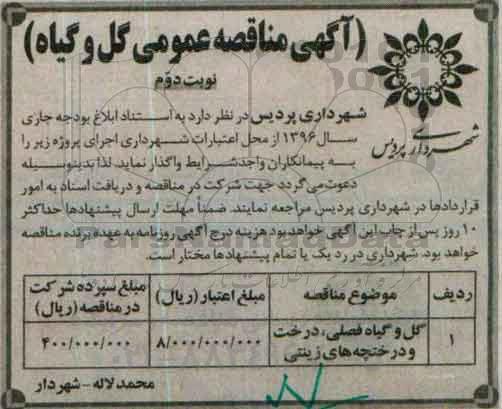 (آگهی مناقصه عمومی گل و گیاه)
نوبت دوّم
شهرداری پردیس
شهرداری پردیس در نظر دارد به استناد ابلاغ بودجه جاری
سال ۱۳۹۶ از محل اعتبارات شهرداری اجرای پروژه زیر را
به پیمانکاران واجد شرایط واگذار نماید. لذا بدینوسیله
دعوت می گردد جهت شرکت در مناقصه و دریافت اسناد به امور
قراردادها در شهرداری پردیس مراجعه نمایند. ضمناً مهلت ارسال پیشنهادها حداکثر
۱۰ روز پس از چاپ این آگهی خواهد بود هزینه درج آگهی روزنامه به عهده برنده مناقصه
خواهد بود. شهرداری در رد یک یا تمام پیشنهادها مختار است.
ردیف موضوع مناقصه مبلغ اعتبار (ریال) مبلغ سپرده شرکت در مناقصه (ریال)
۱ گل و گیاه فصلی، درخت و درختچه های زینتی ۸/۰۰۰/۰۰۰/۰۰۰ ۴۰۰/۰۰۰/۰۰۰
محمد لاله - شهردار
ParsNamadData